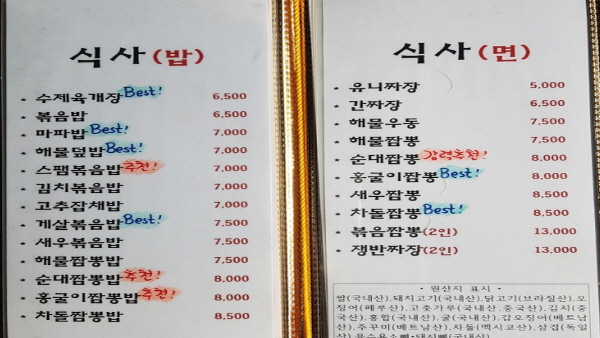 식사(밥)
• 수제육개장 Best! 6,500
• 볶음밥 6,500
• 마파밥 Best! 7,000
• 해물덮밥 Best! 7,000
• 스팸볶음밥 추천! 7,000
• 김치볶음밥 7,000
• 고추잡채밥 7,000
• 게살볶음밥 Best! 7,500
• 새우볶음밥 7,500
• 해물짬뽕밥 7,500
• 순대짬뽕밥 추천! 8,000
• 홍굴이짬뽕밥 추천! 8,000
• 차돌짬뽕밥 8,500
식사(면)
• 유니짜장 5,000
• 간짜장 6,500
• 해물우동 7,500
• 해물짬뽕 7,500
• 순대짬뽕 강력추천! 8,000
• 홍굴이짬뽕 Best! 8,000
• 새우짬뽕 8,500
• 차돌짬뽕 Best! 8,500
• 볶음짬뽕(2인) 13,000
• 쟁반짜장(2인) 13,000
• 원산지 표시 •
쌀(국내산),돼지고기(국내산),닭고기(브라질산),오
징어(페루산),고춧가루(국내산,중국산),김치(중
국산),홍합(국내산),굴(국내산),갑오징어(베트남
산),주꾸미(베트남산),차돌(멕시코산),삼겹(독일
산),육수용소뼈,돼지뼈(국내산)